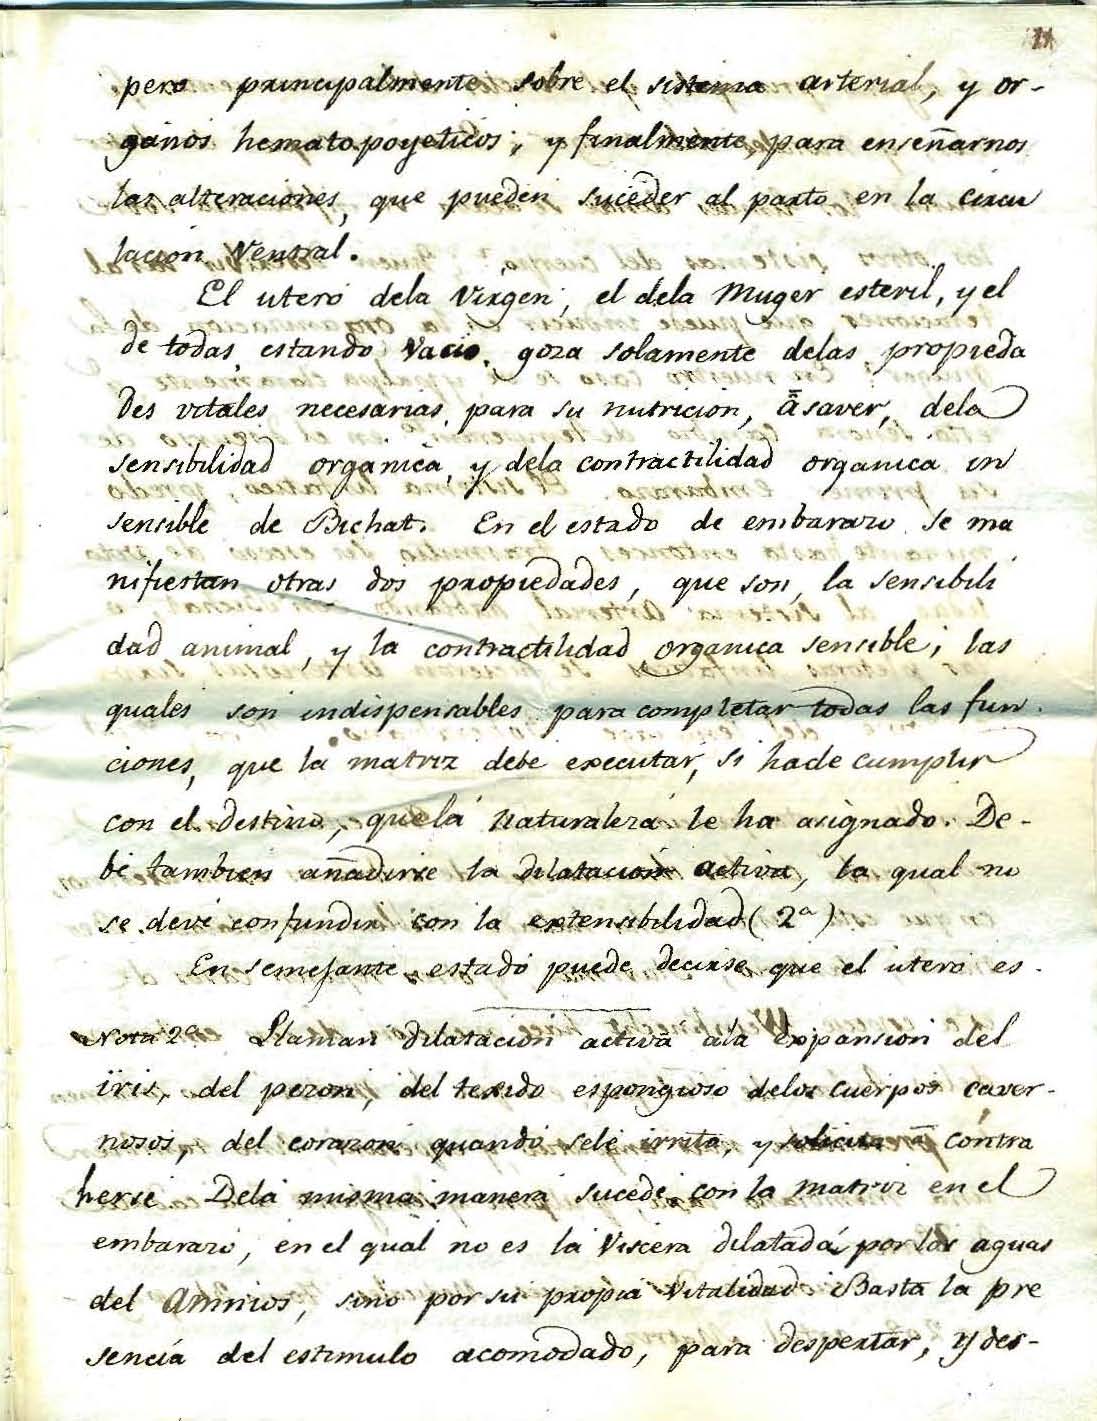 11
pero principalmente sobre el sistema arterial, y or-
ganos hematopoyeticos; y finalmente, para enseñarnos
las alteraciones, que pueden suceder al parto en la circu
lacion Ventral.
El utero dela Virgen, el dela Muger esteril, y el
de todas, estando Vacio, goza solamente delas propieda
des vitales necesarias para su nutricion, â saver, dela
sensibilidad organica, y dela contractilidad organica in
sensible de Bichat. En el estado de embarazo se ma
nifiestan otras dos propiedades, que son, la sensibili
dad animal, y la contractilidad organica sensible; las
quales son indispensables para completar todas las fun
ciones, que la matriz debe executar, si hade cumplir
con el destino, que la naturaleza le ha asignado. De-
be tambien añadirse la dilatacion activa, la qual no
se deve confundir con la extensibilidad (2ª)
En semejante estado puede decirse que el utero es-
Nota 2ª Llaman dilatacion activa ala expansion del
iris, del pezon, del texido espongioso delos cuerpos caver-
nosos, del corazon quando sele irrita, y solicita â contra
herse. Dela misma manera sucede con la matriz en el
embarazo, en el qual no es la Viscera dilatada por las aguas
del Amnios, sino por su propia Vitalidad. Basta la pre
sencia del estimulo acomodado, para despertar, y des-